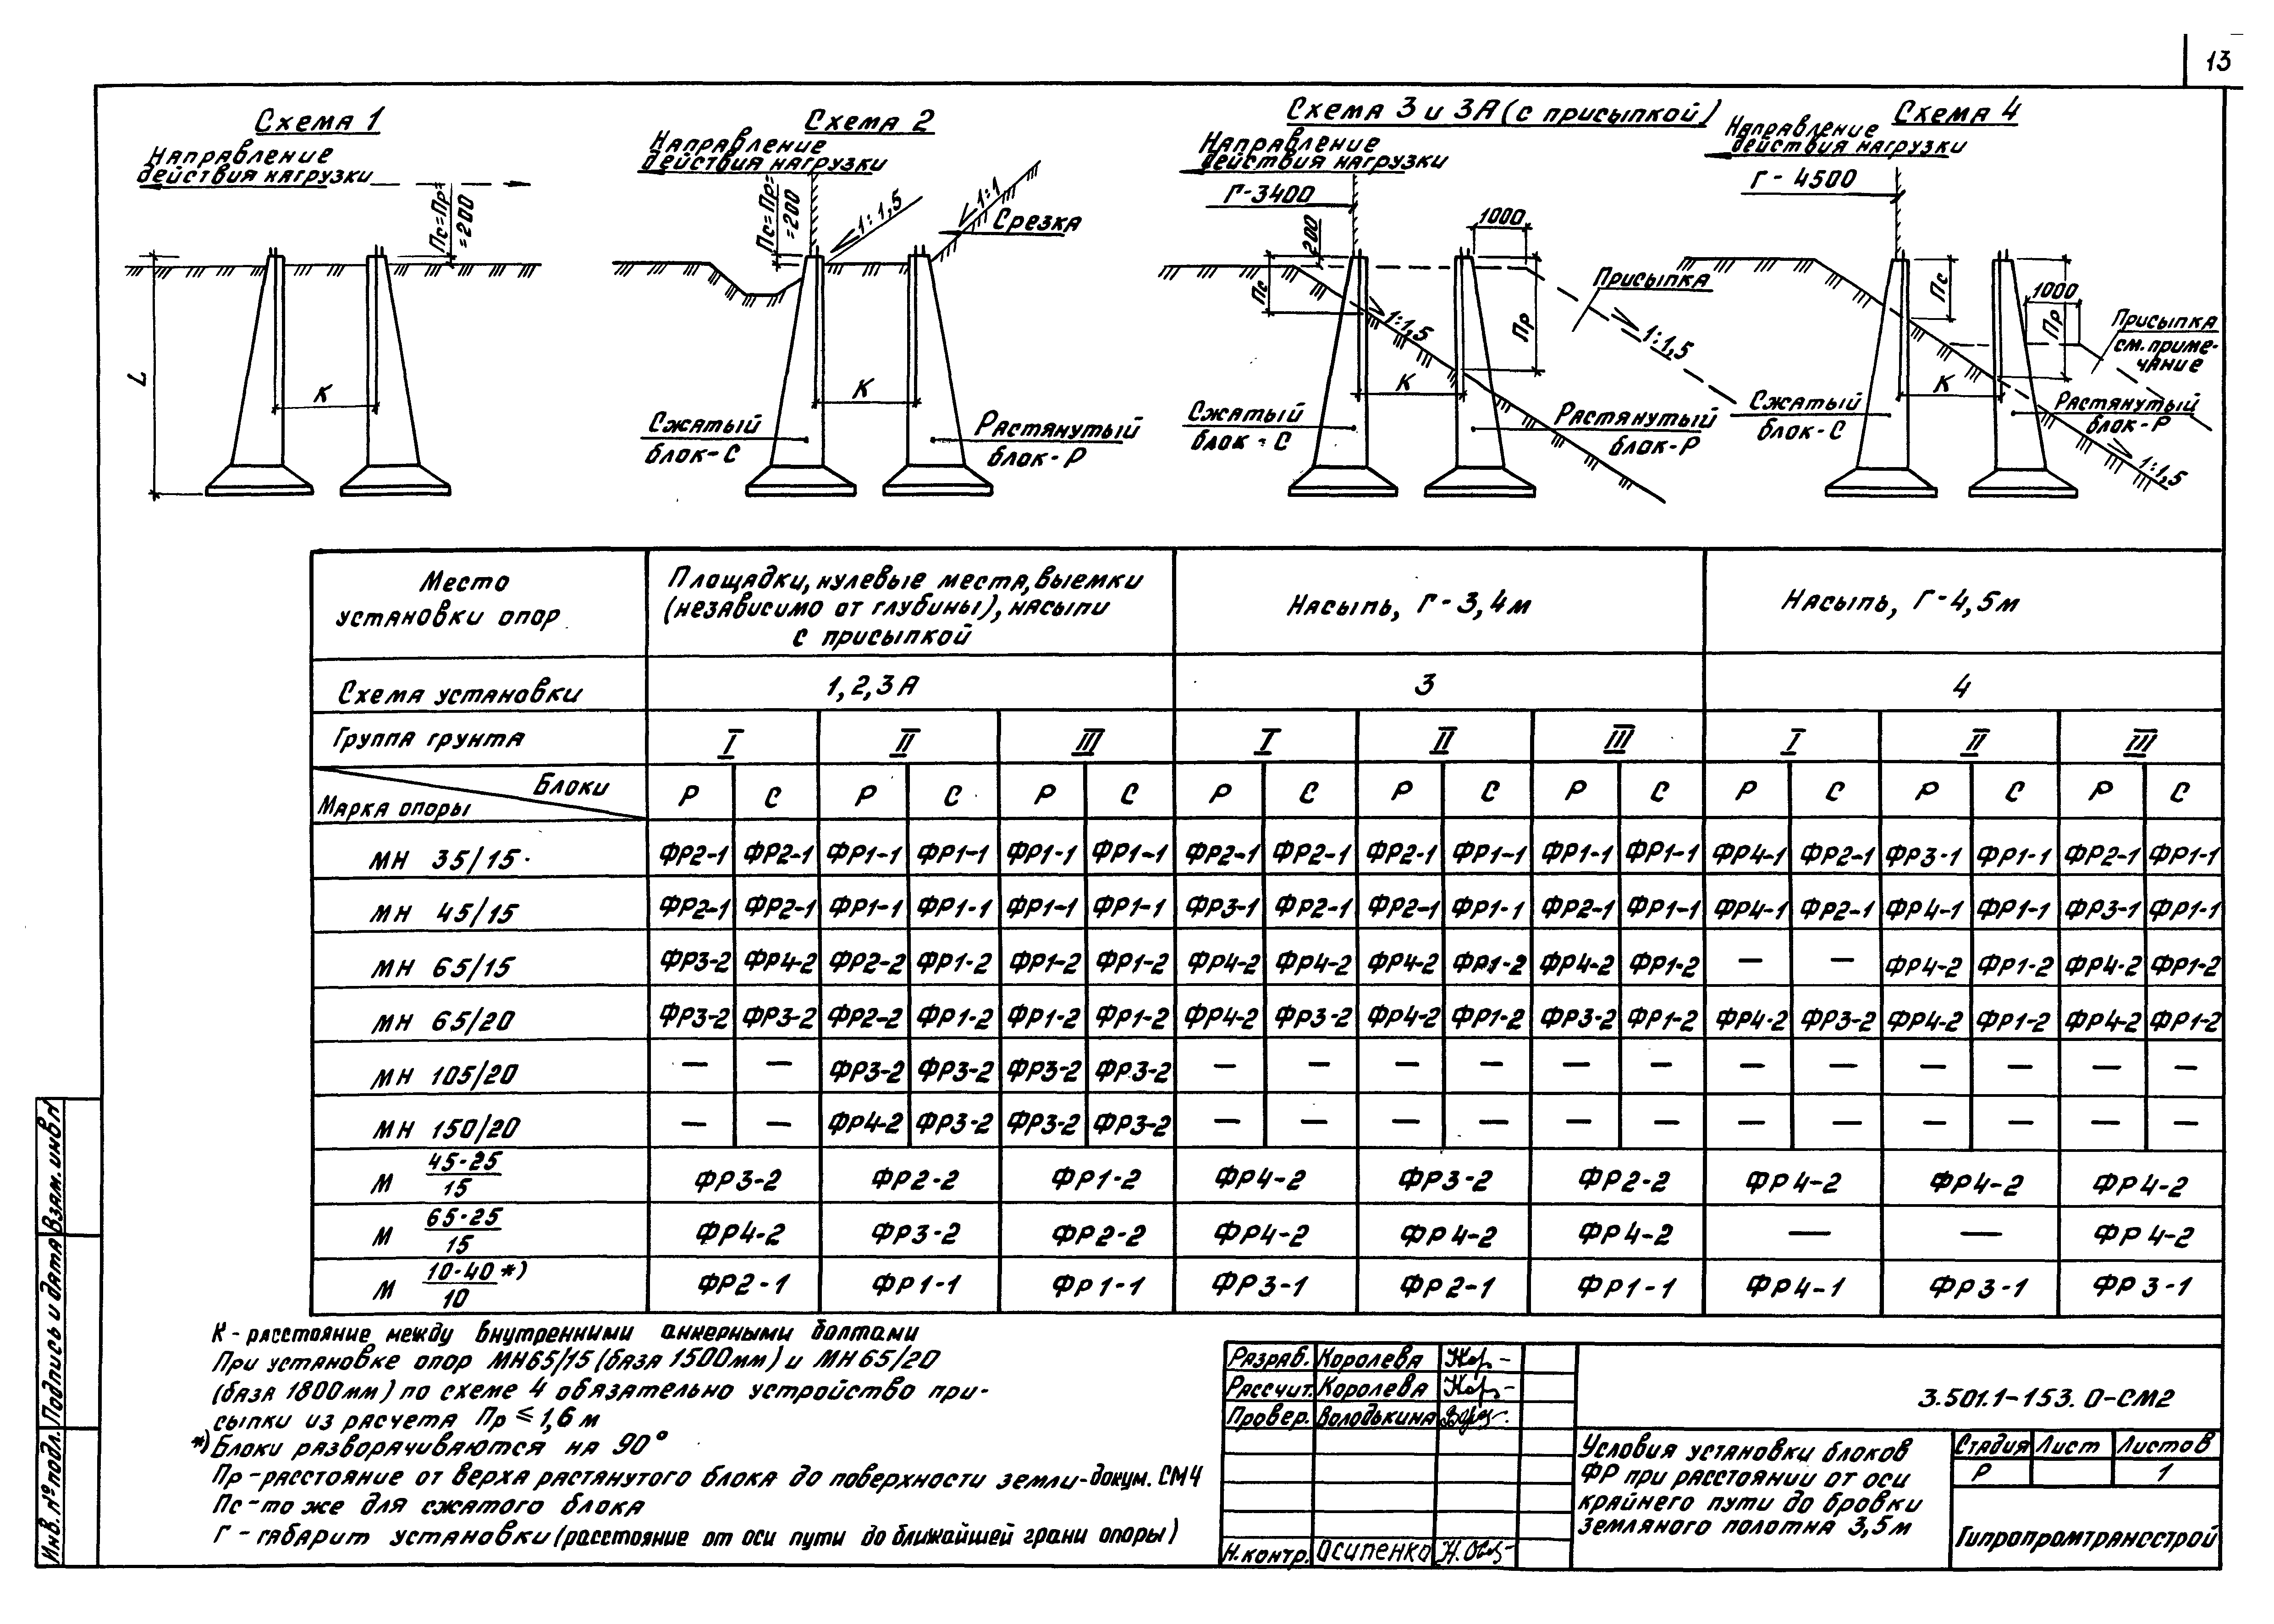 13
Схема 1
Направление
действия нагрузки
Пс=Пр=
=200
L
К
Схема 2
Направление
действия нагрузки
Пс=Пр=
=200
1:1,5
1:1
Срезка
К
Сжатый
блок-С
Растянутый
блок-Р
Схема 3 и 3А (с присыпкой)
Направление
действия нагрузки
Г-3400
200
1000
Пс
Пр
1:1,5
Присыпка
1:1,5
К
Сжатый
блок-С
Растянутый
блок-Р
Схема 4
Направление
действия нагрузки
Г-4500
Пс
1000
Пр
Присыпка
см. приме-
чание
К
Сжатый
блок-С
Растянутый
блок-Р
1:1,5
Место
установки опор
Площадки, нулевые места, выемки
(независимо от глубины), насыпи
с присыпкой
Насыпь, Г-3,4м
Насыпь, Г-4,5м
Схема установки 1,2,3А 3 4
Группа грунта I II III I II III I II III
Блоки
Марка опоры Р С Р С Р С Р С Р С Р С Р С Р С Р С
МН 35/15 ФР2-1 ФР2-1 ФР1-1 ФР1-1 ФР1-1 ФР1-1 ФР2-1 ФР2-1 ФР2-1 ФР1-1 ФР1-1 ФР1-1 ФР4-1 ФР2-1 ФР3-1 ФР1-1 ФР2-1 ФР1-1
МН 45/15 ФР2-1 ФР2-1 ФР1-1 ФР1-1 ФР1-1 ФР1-1 ФР3-1 ФР2-1 ФР2-1 ФР1-1 ФР2-1 ФР1-1 ФР4-1 ФР2-1 ФР4-1 ФР1-1 ФР3-1 ФР1-1
МН 65/15 ФР3-2 ФР4-2 ФР2-2 ФР1-2 ФР1-2 ФР1-2 ФР4-2 ФР4-2 ФР4-2 ФР1-2 ФР4-2 ФР1-2 — — ФР4-2 ФР1-2 ФР4-2 ФР1-2
МН 65/20 ФР3-2 ФР3-2 ФР2-2 ФР1-2 ФР1-2 ФР1-2 ФР4-2 ФР3-2 ФР4-2 ФР1-2 ФР3-2 ФР1-2 ФР4-2 ФР3-2 ФР4-2 ФР1-2 ФР4-2 ФР1-2
МН 105/20 — — ФР3-2 ФР3-2 ФР3-2 ФР3-2 — — — — — — — — — — — —
МН 150/20 — — ФР4-2 ФР3-2 ФР3-2 ФР3-2 — — — — — — — — — — — —
М 45-25/15 ФР3-2 ФР2-2 ФР1-2 ФР4-2 ФР3-2 ФР2-2 ФР4-2 ФР4-2 ФР4-2
М 65-25/15 ФР4-2 ФР3-2 ФР2-2 ФР4-2 ФР4-2 ФР4-2 — — ФР4-2
М 10-40*)/10 ФР2-1 ФР1-1 ФР1-1 ФР3-1 ФР2-1 ФР1-1 ФР4-1 ФР3-1 ФР3-1
К-расстояние между внутренними анкерными болтами
При установке опор МН65/15 (база 1500мм) и МН65/20
(база 1800мм) по схеме 4 обязательно устройство при-
сыпки из расчета Пр ≤ 1,6м
*) Блоки разворачиваются на 90°
Пр-расстояние от верха растянутого блока до поверхности земли-докум. СМ4
Пс-то же для сжатого блока
Г-габарит установки (расстояние от оси пути до ближайшей грани опоры)
Разраб. Королева
Рассчит. Королева
Провер. Володькина
Н.контр. Осипенко
3.501.1-153.0-СМ2
Условия установки блоков
ФР при расстоянии от оси
крайнего пути до бровки
земляного полотна 3,5м
Стадия Лист Листов
Р 1
Гипропромтрансстрой
Взам. инв.№
Подпись и дата
Инв.№подл.